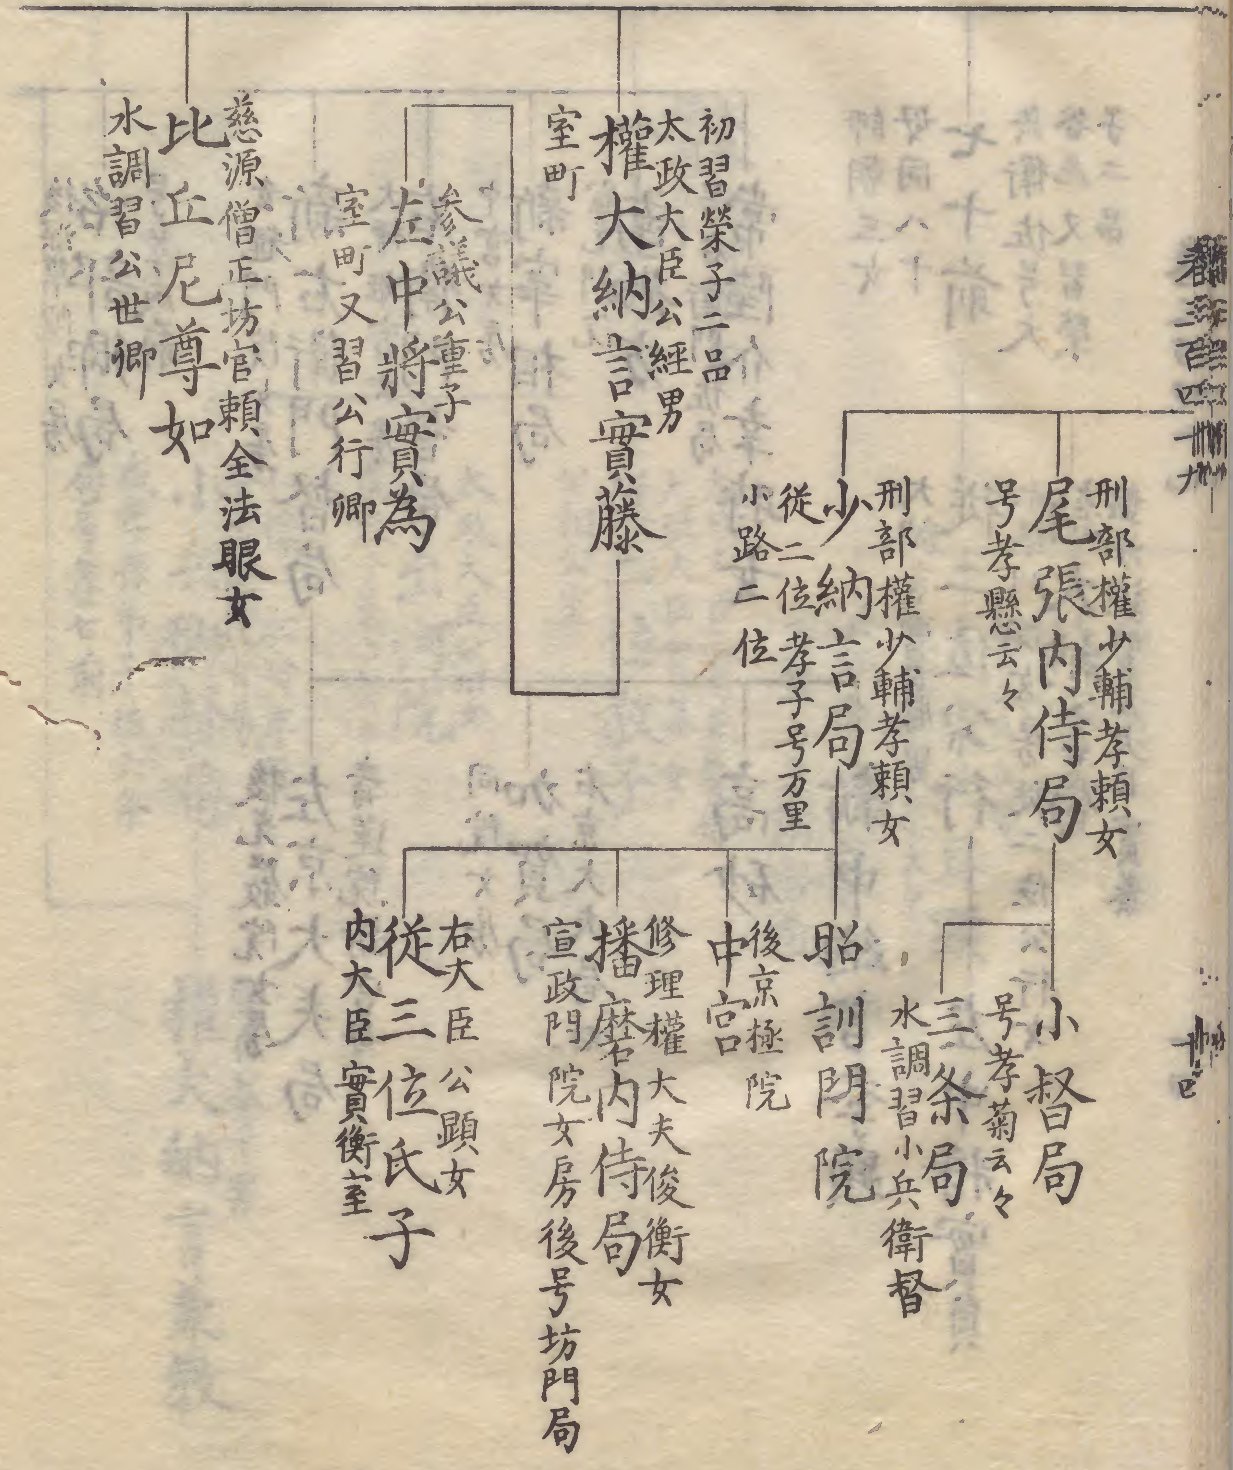 刑部權少輔孝頼女
尾張内侍局
号孝懸云々
刑部權少輔孝頼女
少納言局
従二位孝子号万里
小路二位
小督局
号孝菊云々
三条局
水調習小兵衛督
昭訓門院
後京極院
中宮
修理權大夫俊衡女
播磨内侍局
宣政門院女房後号坊門局
右大臣公顕女
従三位氏子
内大臣實衡室
初習榮子二品
太政大臣公經男
權大納言實藤
室町
参議公重子
左中將實為
室町又習公行卿
慈源僧正坊官頼全法眼女
比丘尼尊如
水調習公世卿